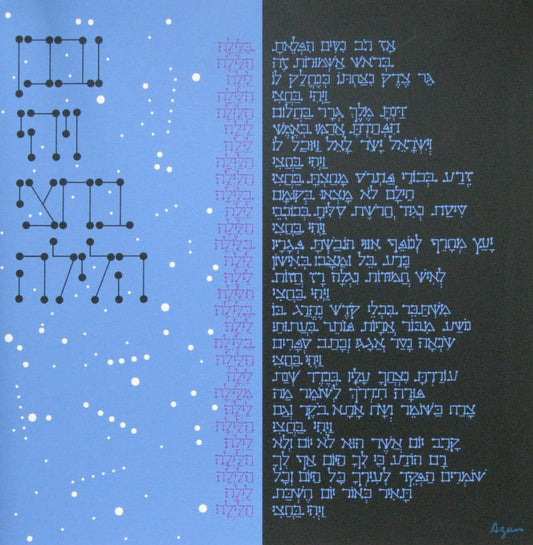 ובכן
ויהי
בחצי
הלילה
אז רב נסים הפלאת בלילה
בראש אשמורות זה הלילה
גר צדק נצחתו כנחלק לו לילה
ויהי בחצי הלילה
דנת מלך גרר בחלום הלילה
הפחדת ארמי באמש לילה
וישראל ישר לאל ויוכל לו לילה
ויהי בחצי הלילה
זרע בכורי פתרוס מחצת בחצי הלילה
חילם לא מצאו בקומם בלילה
טיסת נגיד חרשת סלית בכוכבי לילה
ויהי בחצי הלילה
יעץ מחרף לנופף אווי הובשת פגריו בלילה
כרע בל ומצבו באישון לילה
לאיש חמודות נגלה רז חזות לילה
ויהי בחצי הלילה
משתכר בכלי קדש נהרג בו בלילה
נושע מבור אריות פותר בעתותי לילה
שנאה נטר אגגי וכתב ספרים בלילה
ויהי בחצי הלילה
עוררת נצחך עליו בנדד שנת לילה
פורה תדרוך לשומר מה מלילה
צרח כשומר ושח אתא בקר וגם לילה
ויהי בחצי הלילה
קרב יום אשר הוא לא יום ולא לילה
רם הודע כי לך היום אף לך הלילה
שומרים הפקד לעירך כל היום וכל הלילה
תאיר כאור יום חשכת לילה
ויהי בחצי הלילה
Agam